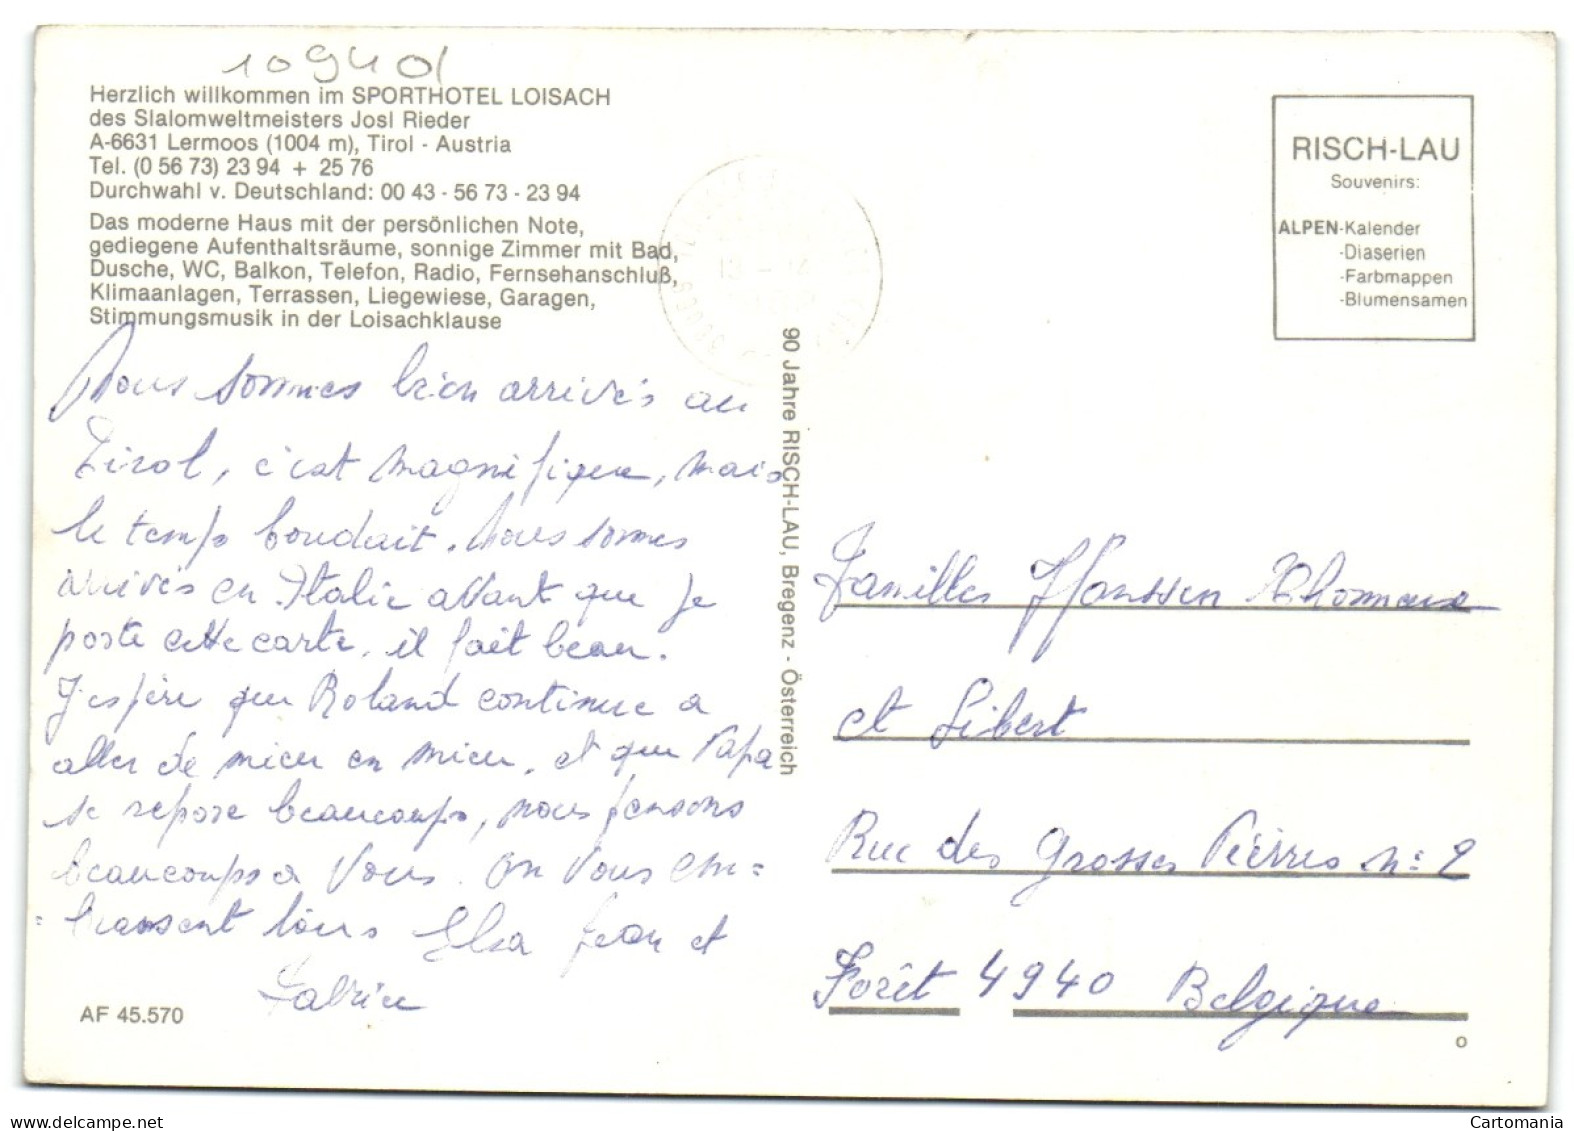 10940
Herzlich willkommen im SPORTHOTEL LOISACH
des Slalomweltmeisters Josl Rieder
A-6631 Lermoos (1004 m), Tirol - Austria
Tel. (0 56 73) 23 94 + 25 76
Durchwahl v. Deutschland: 00 43 - 56 73 - 23 94
Das moderne Haus mit der persönlichen Note,
gediegene Aufenthaltsräume, sonnige Zimmer mit Bad,
Dusche, WC, Balkon, Telefon, Radio, Fernsehanschluß,
Klimaanlagen, Terrassen, Liegewiese, Garagen,
Stimmungsmusik in der Loisachklause
Nous sommes bien arrivés au
Tirol, c'est magnifique, mais
le temps boudait. Nous sommes
arrivés en Italie avant que je
poste cette carte, il fait beau.
J'espère que Roland continue a
aller de mieu en mieu, et que Papa
se repose beaucoups, nous pensons
beaucoups a vous. On vous em=
=brassent tous Elsa Jean et
Fabrice
AF 45.570
90 Jahre RISCH-LAU, Bregenz - Österreich
RISCH-LAU
Souvenirs:
ALPEN-Kalender
-Diaserien
-Farbmappen
-Blumensamen
Familles Hanssen
et Libert
Rue des Grosses Pierres n: 2
Forêt 4940 Belgique
o
Cartomania